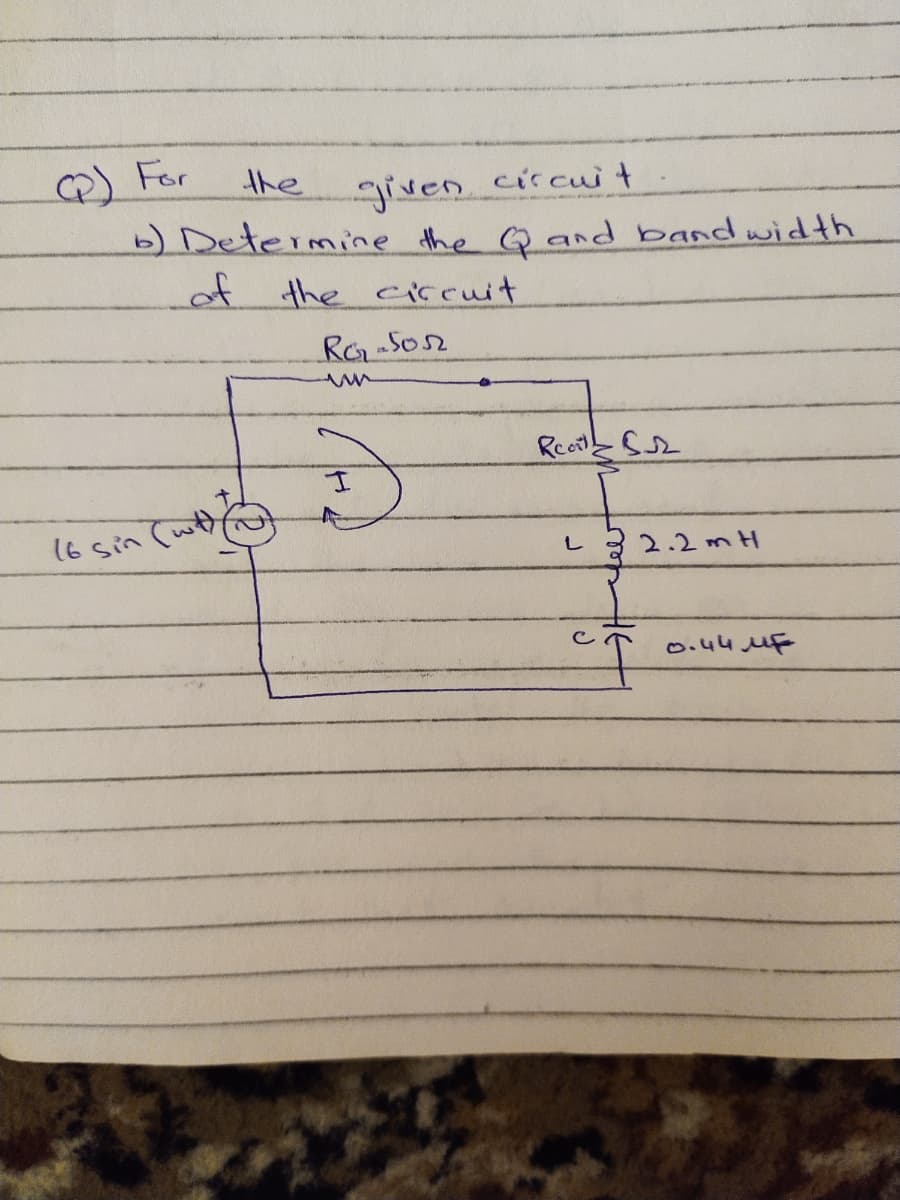 Q) For the given circuit.
b) Determine the Q and bandwidth
of the circuit
RG = 50Ω
Rcoil 5Ω
I
+
16 sin (wt)
-
L 2.2 mH
C 0.44 μF